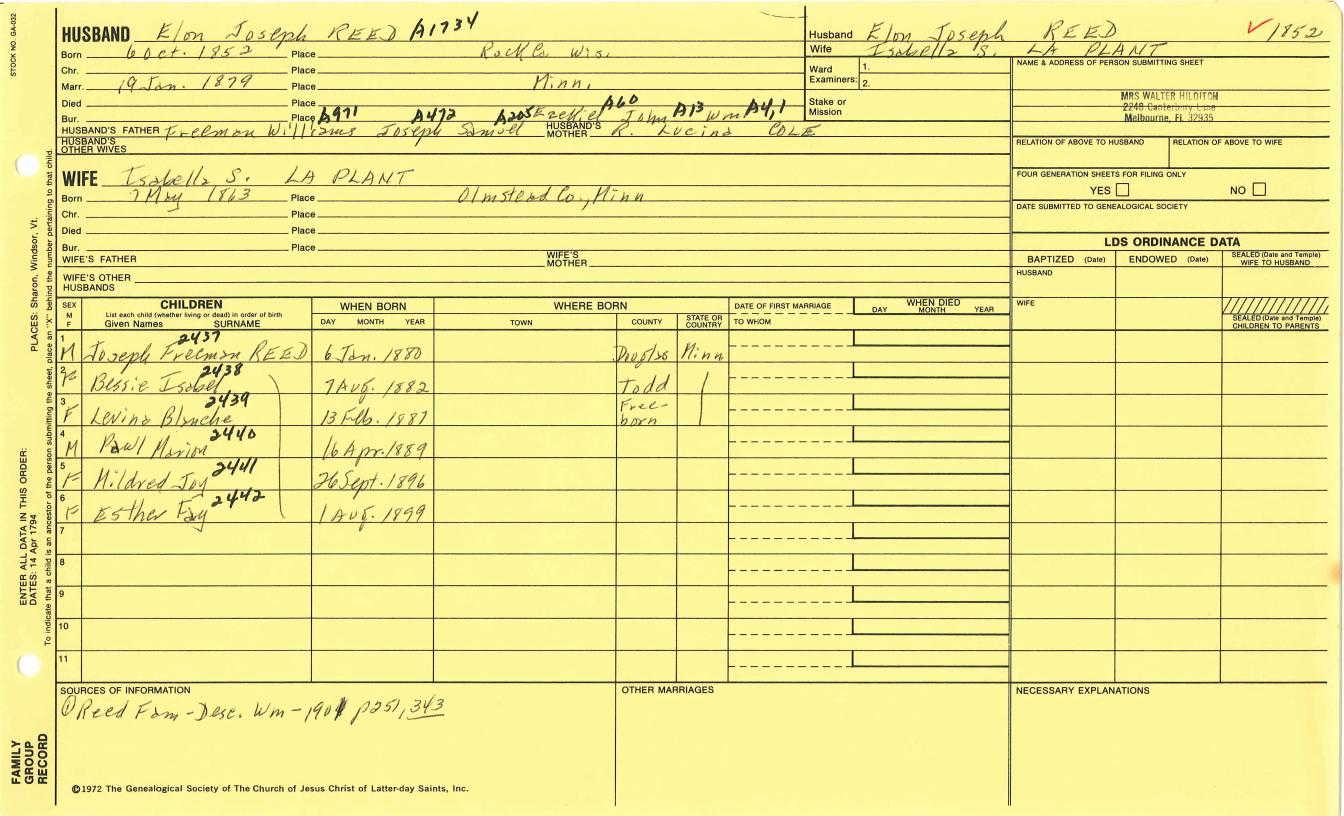 STOCK NO. GA-032
HUSBAND Elon Joseph REED A1734
Born 6 Oct. 1852 Place Rock Co. Wis.
Chr. Place
Marr. 19 Jan. 1879 Place Minn.
Died Place
Bur. Place A971 A472 A205 Ezekiel A60 John A13 Wm A4,1
HUSBAND'S FATHER Freeman Williams Joseph Samuel HUSBAND'S MOTHER R. Lucina COLE
HUSBAND'S OTHER WIVES
Husband Elon Joseph REED ✓ 1852
Wife Isabella S. LA PLANT
Ward Examiners: 1.
2.
Stake or Mission
NAME & ADDRESS OF PERSON SUBMITTING SHEET
MRS WALTER HILDITCH
2248 Canterbury Lane
Melbourne, FL 32935
RELATION OF ABOVE TO HUSBAND RELATION OF ABOVE TO WIFE
FOUR GENERATION SHEETS FOR FILING ONLY
YES NO
DATE SUBMITTED TO GENEALOGICAL SOCIETY
WIFE Isabella S. LA PLANT
Born 7 May 1863 Place Olmstead Co., Minn
Chr. Place
Died Place
Bur. Place
WIFE'S FATHER WIFE'S MOTHER
WIFE'S OTHER HUSBANDS
LDS ORDINANCE DATA
BAPTIZED (Date) ENDOWED (Date) SEALED (Date and Temple) WIFE TO HUSBAND
HUSBAND
WIFE
SEALED (Date and Temple) CHILDREN TO PARENTS
SEX M F CHILDREN List each child (whether living or dead) in order of birth Given Names SURNAME
WHEN BORN DAY MONTH YEAR
WHERE BORN TOWN COUNTY STATE OR COUNTRY
DATE OF FIRST MARRIAGE TO WHOM
WHEN DIED DAY MONTH YEAR
1 M Joseph Freeman REED 2437 6 Jan. 1880 Douglas Minn
2 F Bessie Isabel 2438 7 Aug. 1882 Todd
3 F Levina Blanche 2439 13 Feb. 1887 Free-born
4 M Pawl Marion 2440 16 Apr. 1889
5 F Mildred Joy 2441 26 Sept. 1896
6 F Esther Fay 2442 1 Aug. 1899
7
8
9
10
11
SOURCES OF INFORMATION
① Reed Fam-Desc. Wm-1901 p251, 343
OTHER MARRIAGES
NECESSARY EXPLANATIONS
©1972 The Genealogical Society of The Church of Jesus Christ of Latter-day Saints, Inc.
FAMILY GROUP RECORD
ENTER ALL DATA IN THIS ORDER:
DATES: 14 Apr 1794
PLACES: Sharon, Windsor, Vt.
To indicate that a child is an ancestor of the person submitting the sheet, place an "X" behind the number pertaining to that child.